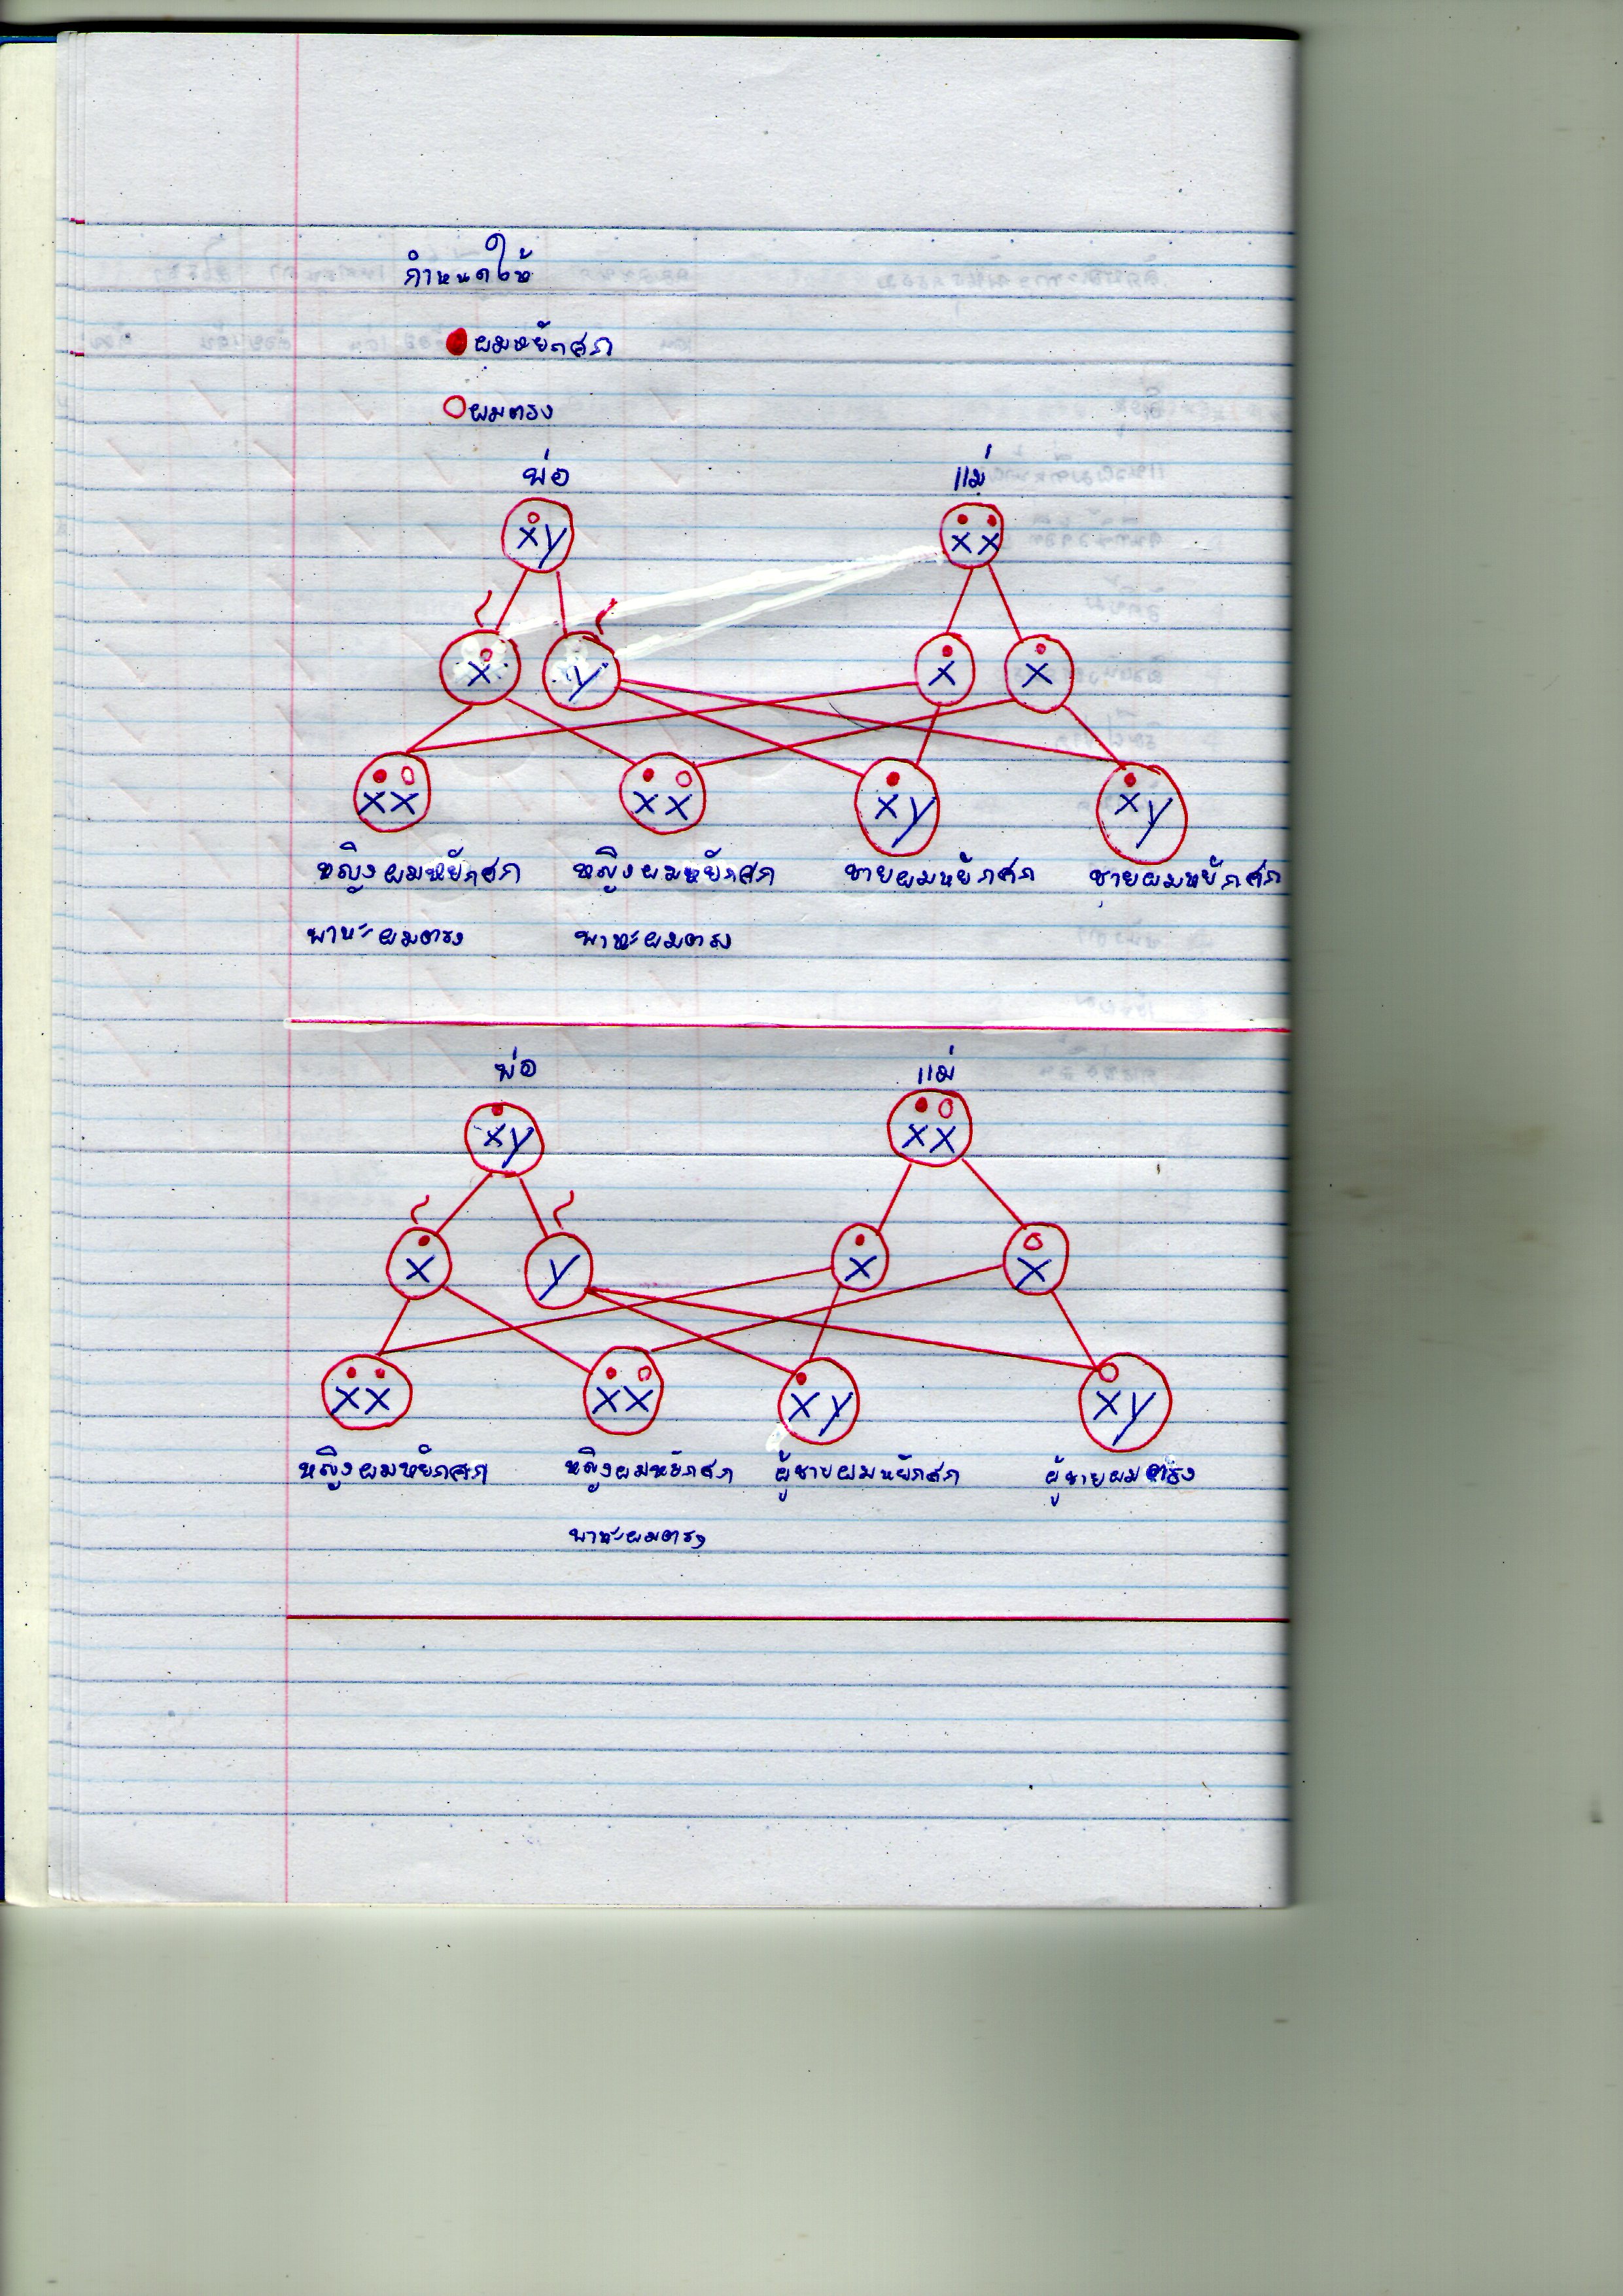 กำหนดให้
ผมหยักศก
ผมตรง
พ่อ แม่
xy xx
x y x x
xx xx xy xy
หญิงผมหยักศก หญิงผมหยักศก ชายผมหยักศก ชายผมหยักศก
พาหะผมตรง พาหะผมตรง
พ่อ แม่
xy xx
x y x x
xx xx xy xy
หญิงผมหยักศก หญิงผมหยักศก ผู้ชายผมหยักศก ผู้ชายผมตรง
พาหะผมตรง